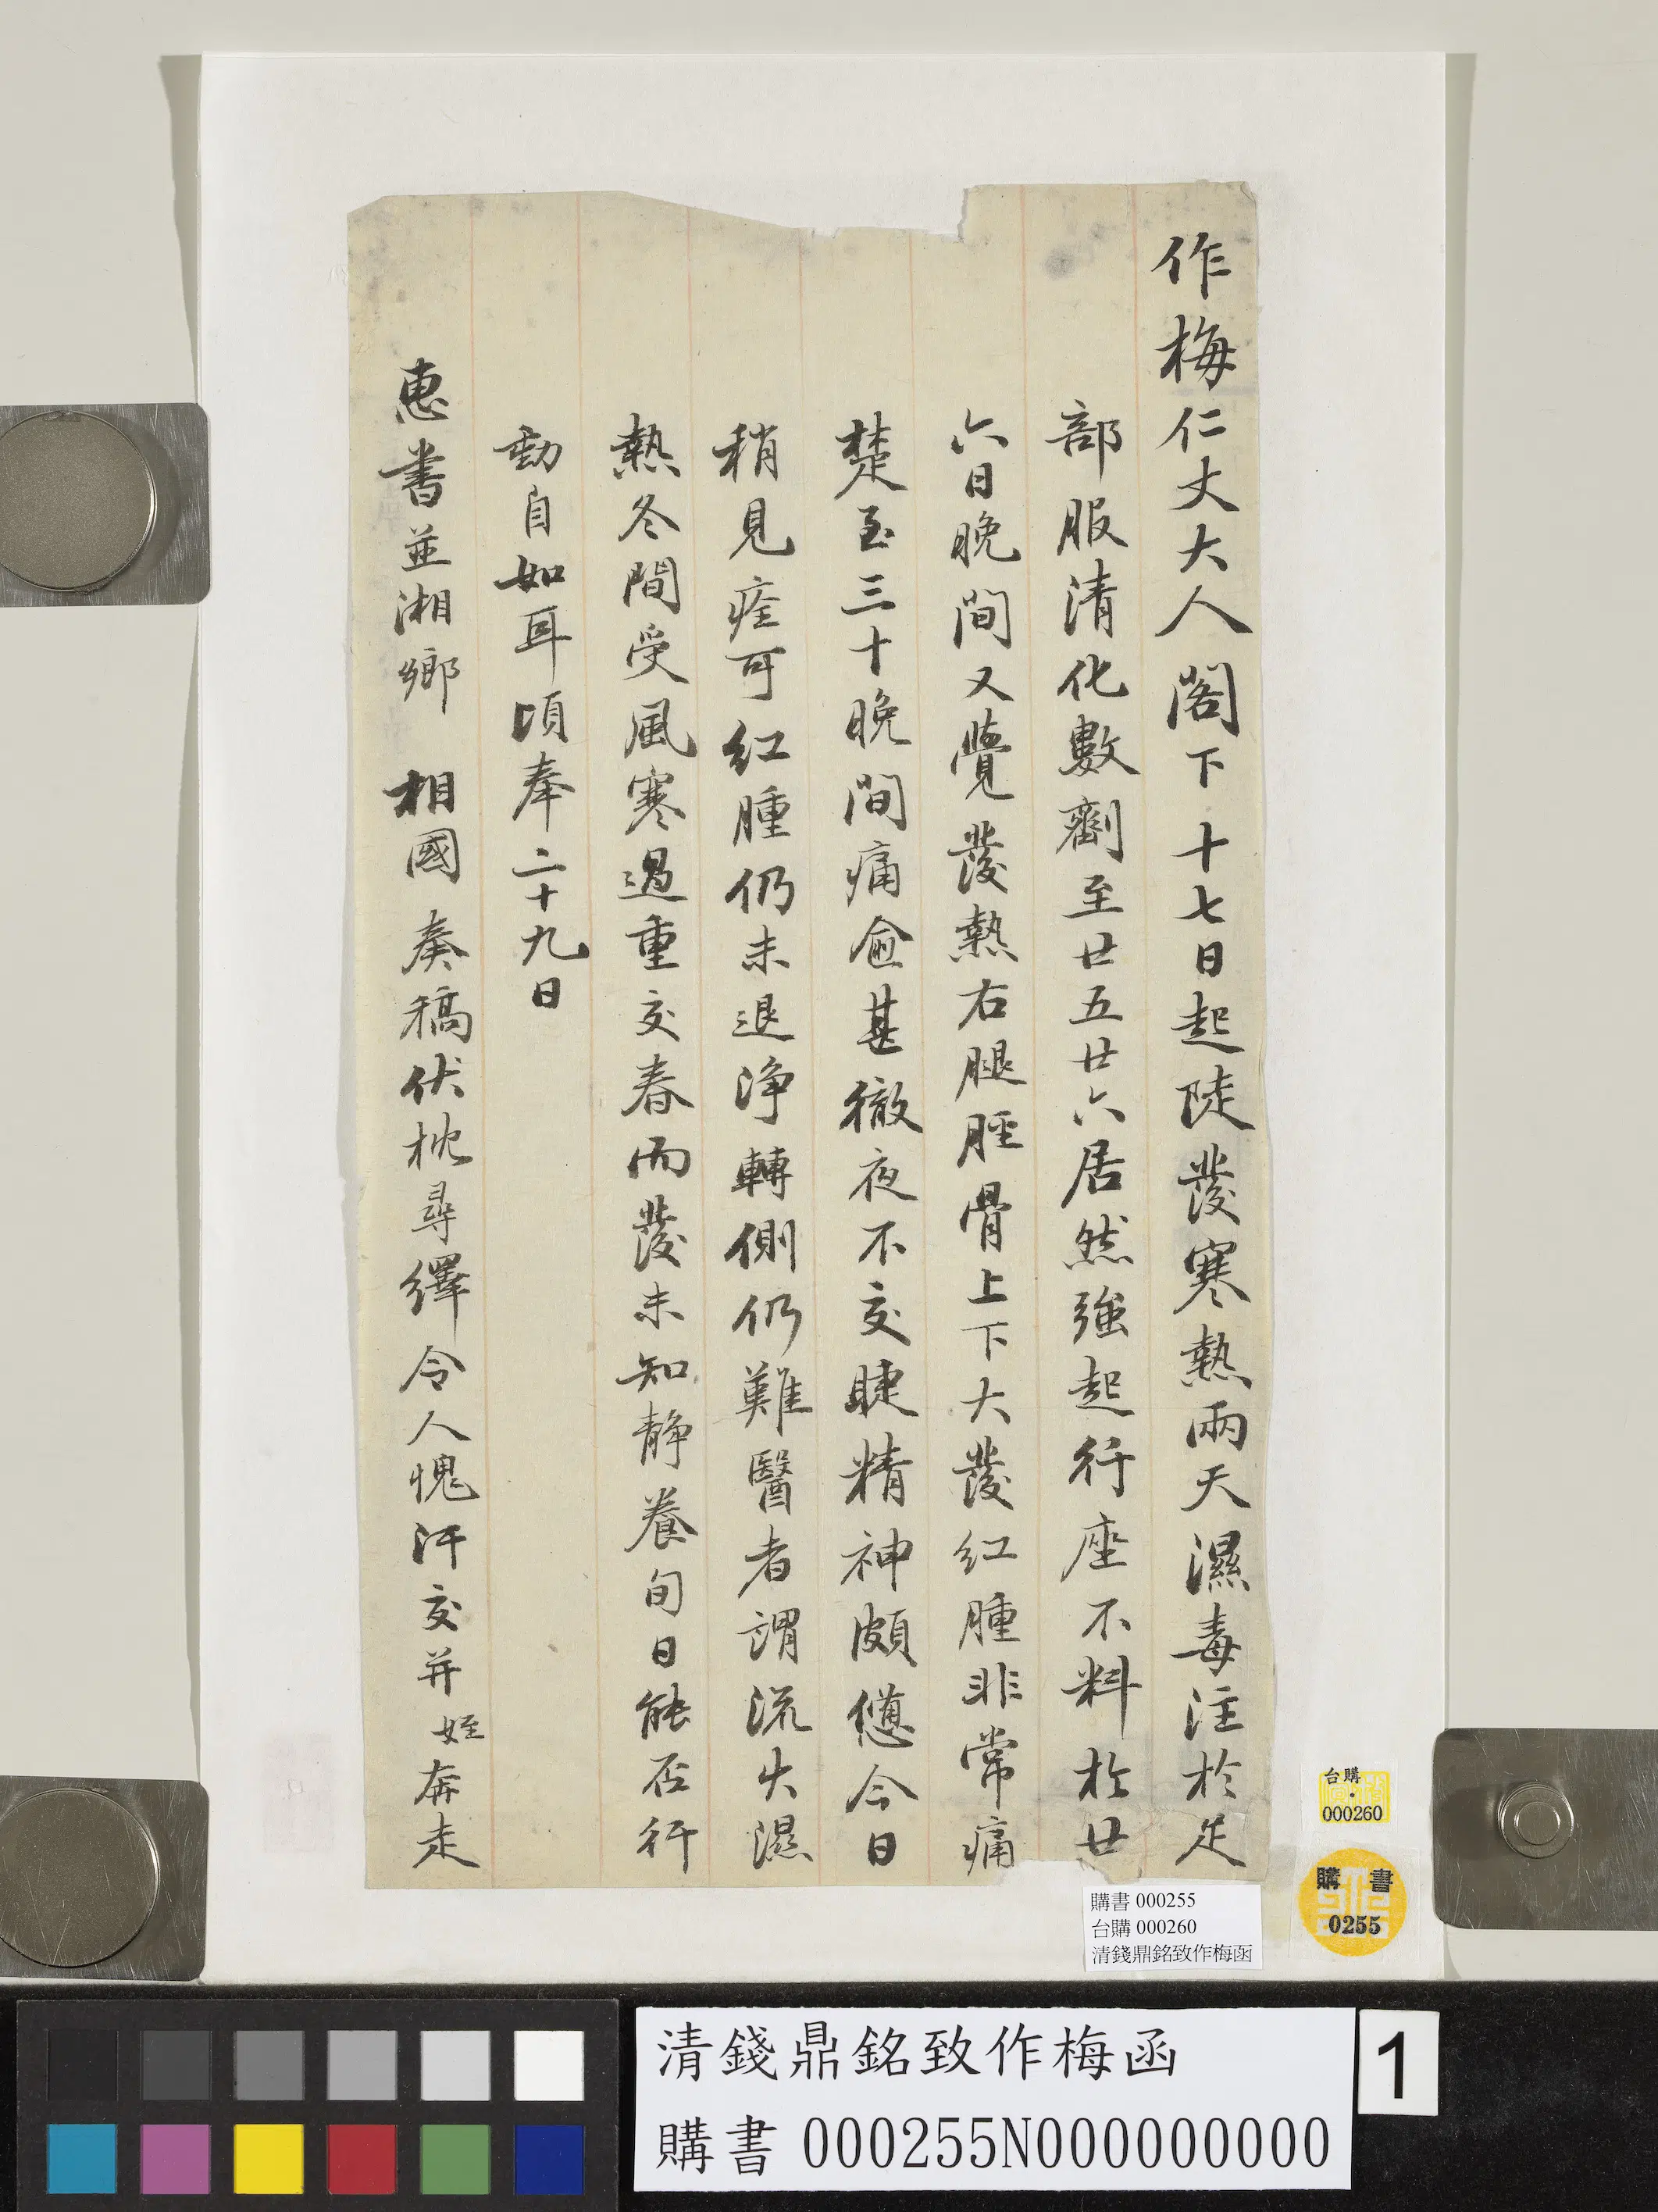 作梅仁丈大人閣下十七日起陡發寒熱兩天濕毒注於足
部服清化數劑至廿五廿六居然強起行座不料於廿
六日晚間又覺發熱右腿脛骨上下大發紅腫非常痛
楚至三十晚間痛愈甚徹夜不交睫精神頗憊今日
稍見痊可紅腫仍未退淨轉側仍難醫者謂流火濕
熱冬間受風寒過重交春而發未知靜養旬日能否行
動自如耳頃奉二十九日
惠書並湘鄉 相國奏稿伏枕尋繹令人愧汗交并姪奔走
台購
000260
購書
0255
購書 000255
台購 000260
清錢鼎銘致作梅函
清錢鼎銘致作梅函
購書 000255N000000000
1